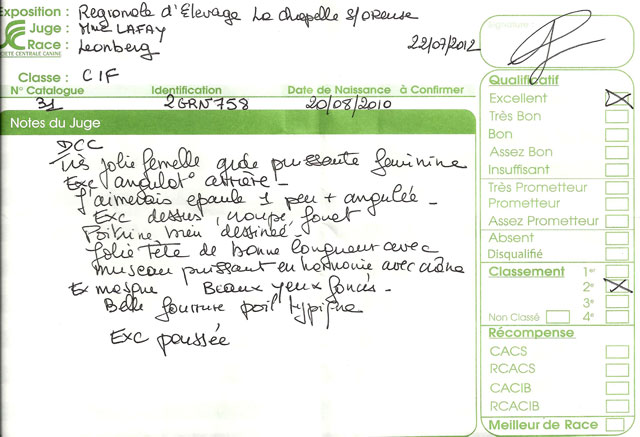 Exposition : Régionale d'Elevage La Chapelle s/Oreuse
Juge : Mme LAFAY
Race : Leonberg
SOCIETE CENTRALE CANINE
22/07/2012
Signature :
Classe : CIF
N° Catalogue Identification Date de Naissance à Confirmer
31 2GRN758 20/08/2010
Notes du Juge
DCC
très jolie femelle gde puissante féminine
Exc angulat° arrière -
J'aimerais épaule 1 peu + angulée -
Exc dessus, croupe, fouet
Poitrine bien dessinée -
Jolie Tête de bonne longueur avec
museau puissant en harmonie avec crâne
Ex masque Beaux yeux foncés -
Belle fourrure poil typique
Exc poussée
Qualificatif
Excellent
Très Bon
Bon
Assez Bon
Insuffisant
Très Prometteur
Prometteur
Assez Prometteur
Absent
Disqualifié
Classement 1er
2e
3e
Non Classé 4e
Récompense
CACS
RCACS
CACIB
RCACIB
Meilleur de Race